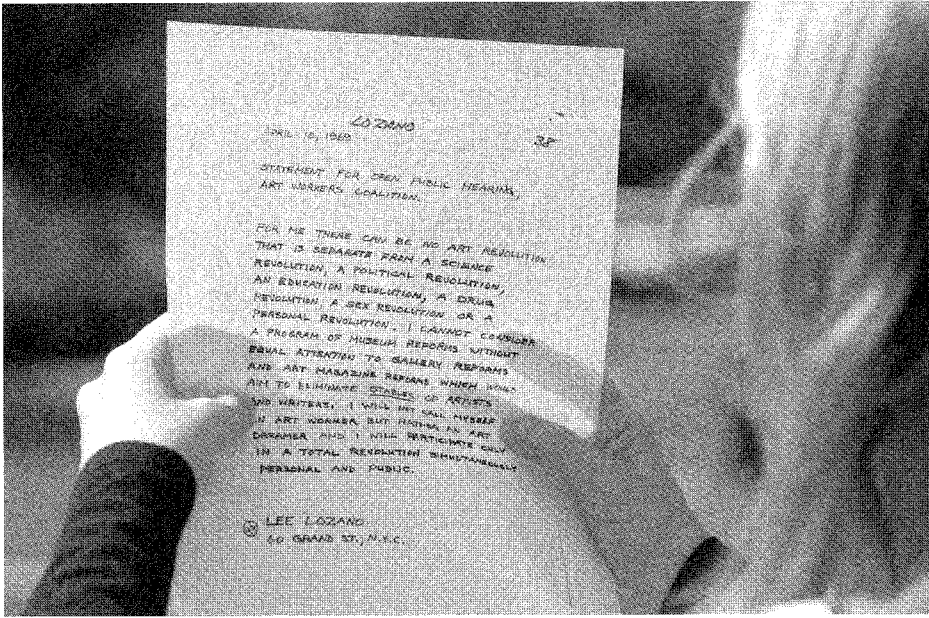 LOZANO
APRIL 10, 1969
38
STATEMENT FOR OPEN PUBLIC HEARING,
ART WORKERS COALITION.
FOR ME THERE CAN BE NO ART REVOLUTION
THAT IS SEPARATE FROM A SCIENCE
REVOLUTION, A POLITICAL REVOLUTION,
AN EDUCATION REVOLUTION, A DRUG
REVOLUTION A SEX REVOLUTION OR A
PERSONAL REVOLUTION. I CANNOT CONSIDER
A PROGRAM OF MUSEUM REFORMS WITHOUT
EQUAL ATTENTION TO GALLERY REFORMS
AND ART MAGAZINE REFORMS WHICH WOULD
AIM TO ELIMINATE STABLES OF ARTISTS
AND WRITERS. I WILL NOT CALL MYSELF
AN ART WORKER BUT RATHER AN ART
DREAMER AND I WILL PARTICIPATE ONLY
IN A TOTAL REVOLUTION SIMULTANEOUSLY
PERSONAL AND PUBLIC.
LEE LOZANO
60 GRAND ST., N.Y.C.